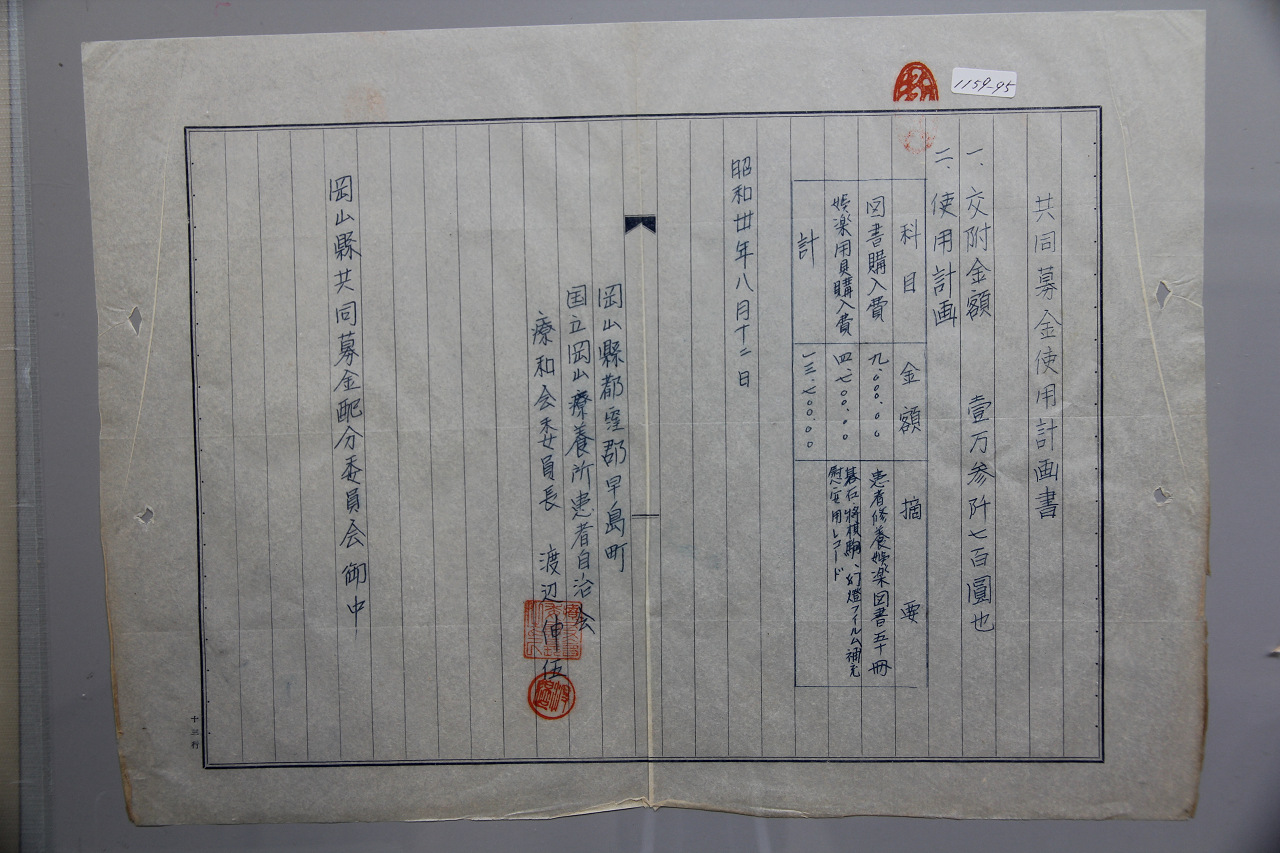 1159-95
共同募金使用計画書
一、交附金額 壹万参阡七百圓也
二、使用計画
科目 金額 摘要
図書購入費 九、〇〇〇.〇〇 患者修養娯楽図書五十冊
娯楽用具購入費 四、七〇〇.〇〇 碁石将棋駒、幻燈フイルム補充
慰安用レコード
計 一三、七〇〇.〇〇
昭和廿年八月十二日
岡山縣都窪郡早島町
国立岡山療養所患者自治会
療和会委員長 渡辺仲伍
岡山縣共同募金配分委員会御中
十三行